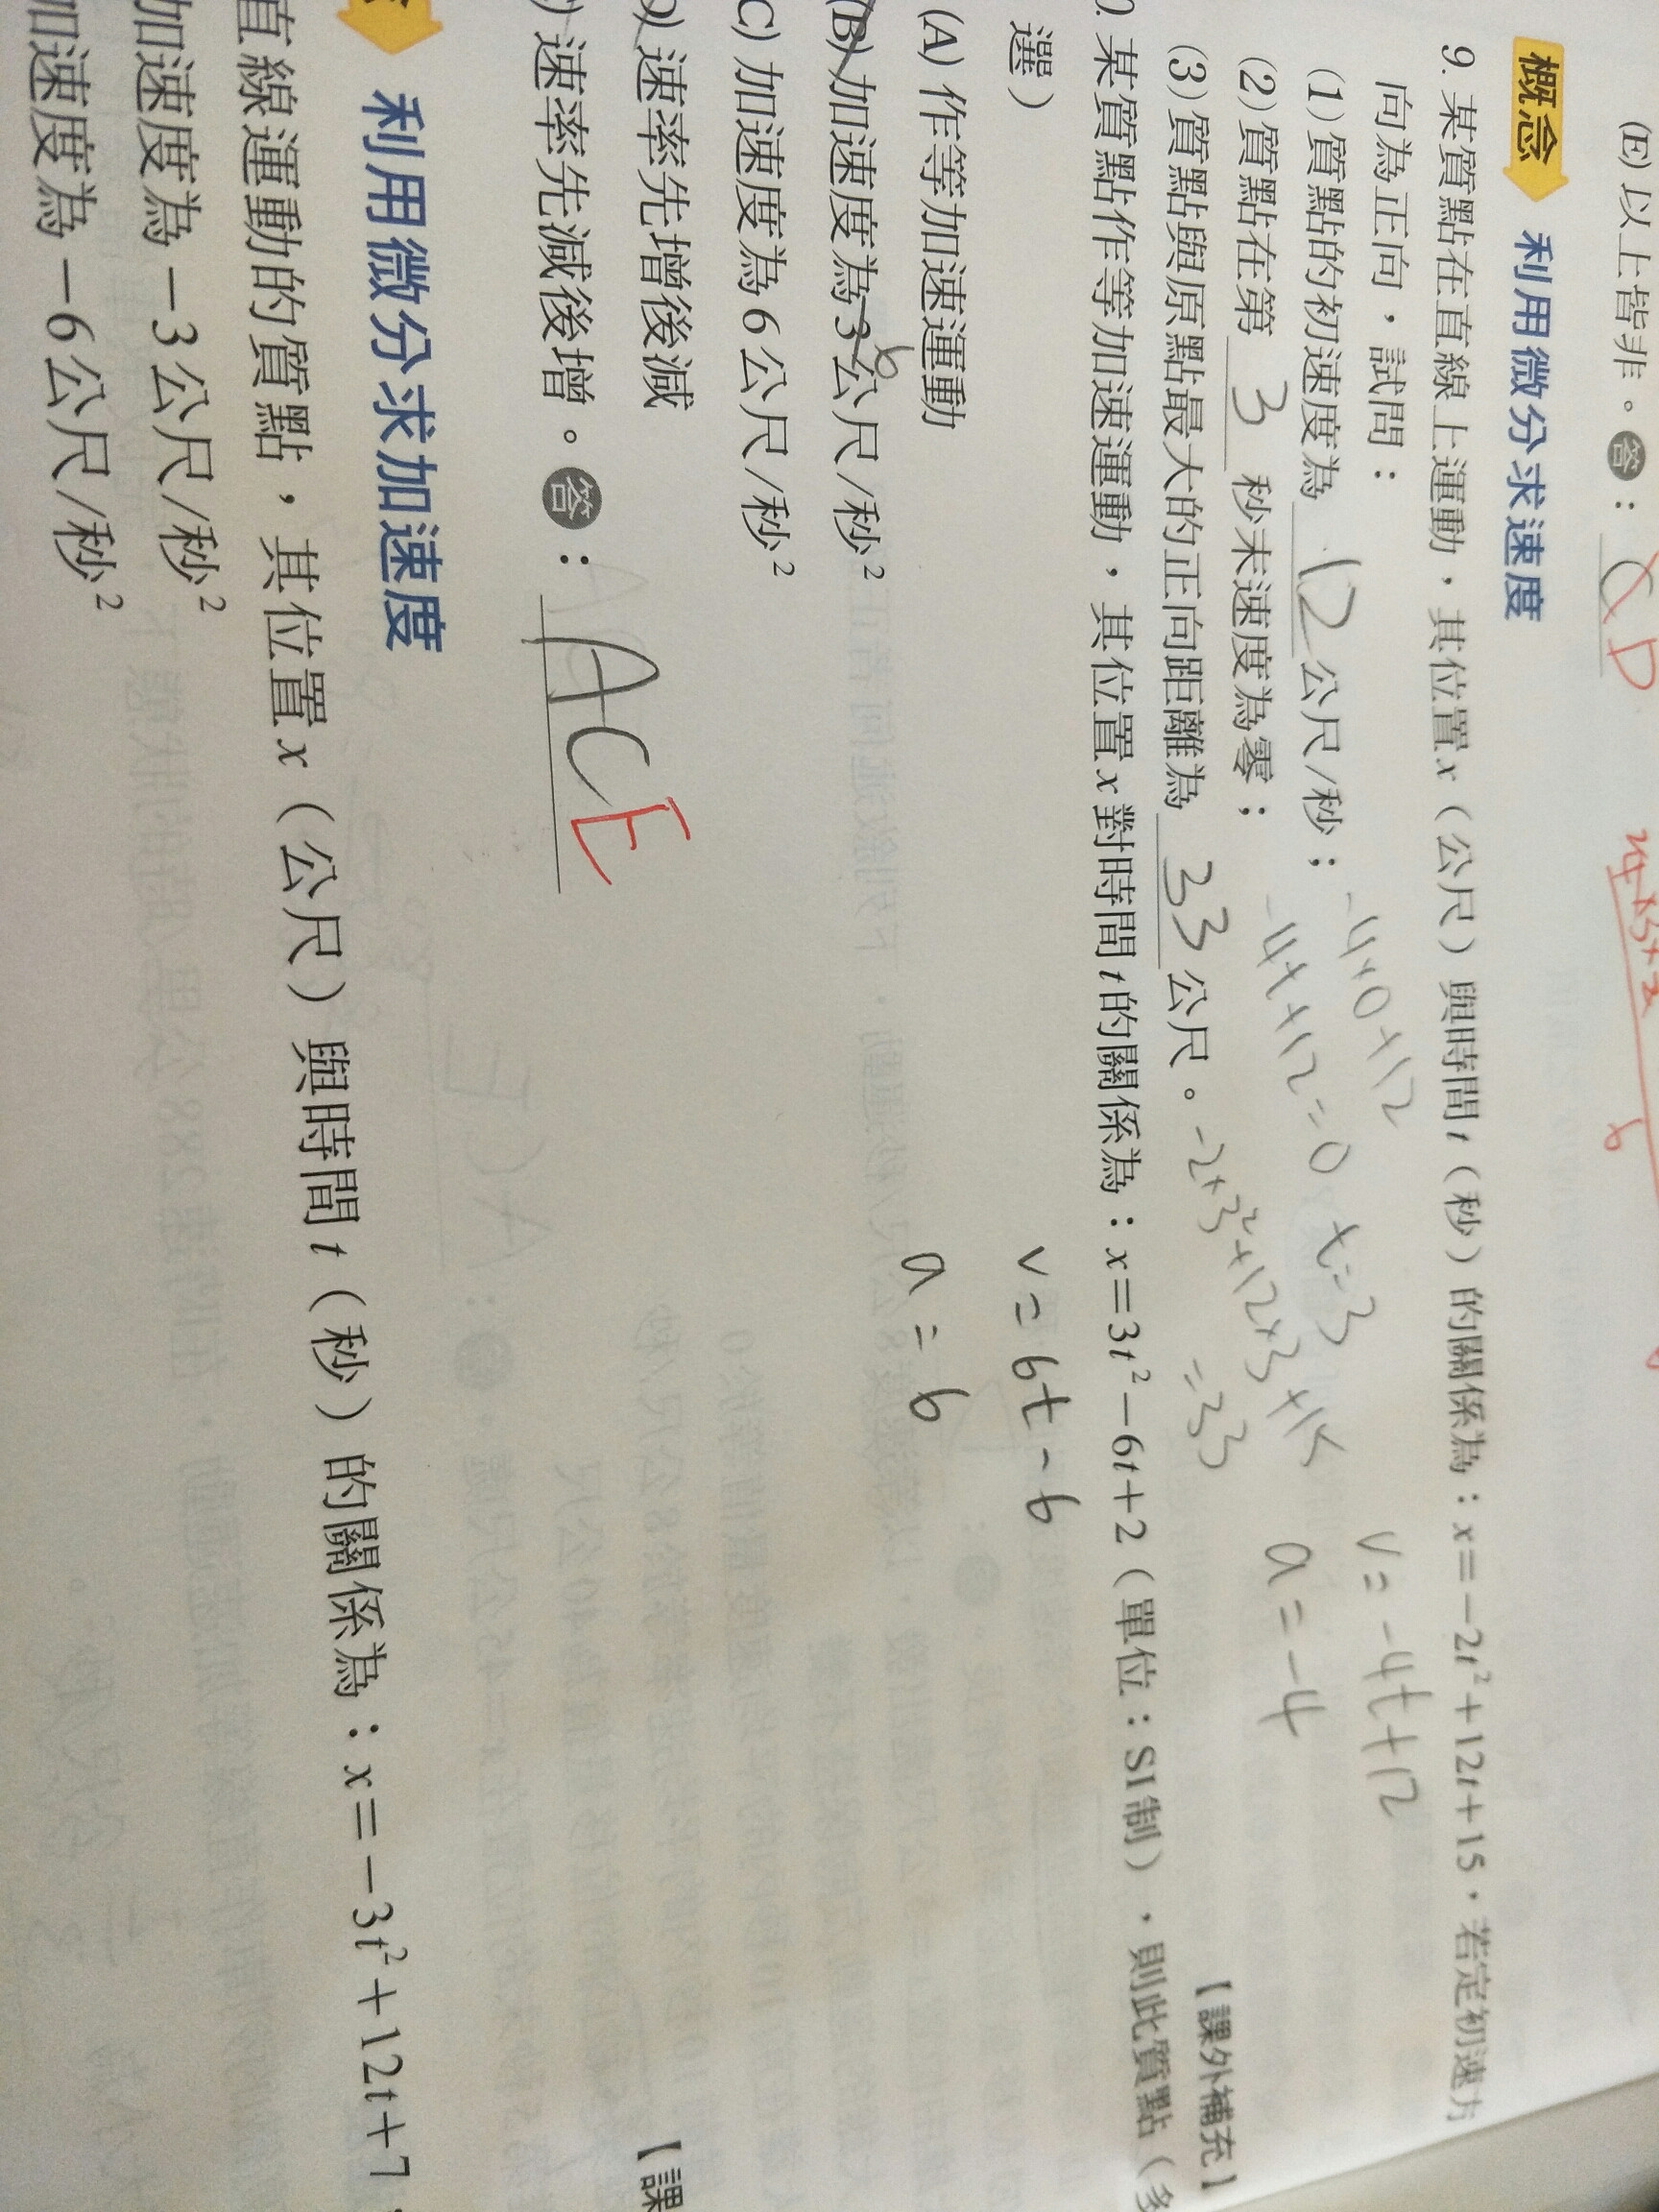 (E) 以上皆非。答：CD
概念 利用微分求速度
9. 某質點在直線上運動，其位置x（公尺）與時間t（秒）的關係為：x＝－2t²＋12t＋15，若定初速方
向為正向，試問：
(1)質點的初速度為 12 公尺/秒； -4×0+12
v=-4t+12
(2)質點在第 3 秒末速度為零； -4t+12=0 t=3
a=-4
(3)質點與原點最大的正向距離為 33 公尺。 -2×3²+12×3+15
=33
【課外補充】
0. 某質點作等加速運動，其位置x對時間t的關係為：x＝3t²－6t＋2（單位：SI制），則此質點（多
選）
v=6t-6
(A) 作等加速運動
a=6
(B) 加速度為3公尺/秒² 6
C) 加速度為6公尺/秒²
D) 速率先增後減
【課
) 速率先減後增。答：ACE
利用微分求加速度
直線運動的質點，其位置x（公尺）與時間t（秒）的關係為：x＝－3t²＋12t＋7
加速度為－3公尺/秒²
加速度為－6公尺/秒²